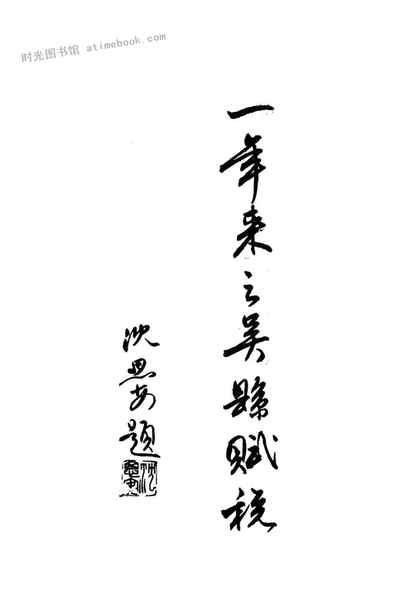 时光图书馆 atimebook.com
一年来之吴縣賦税
沈思安題